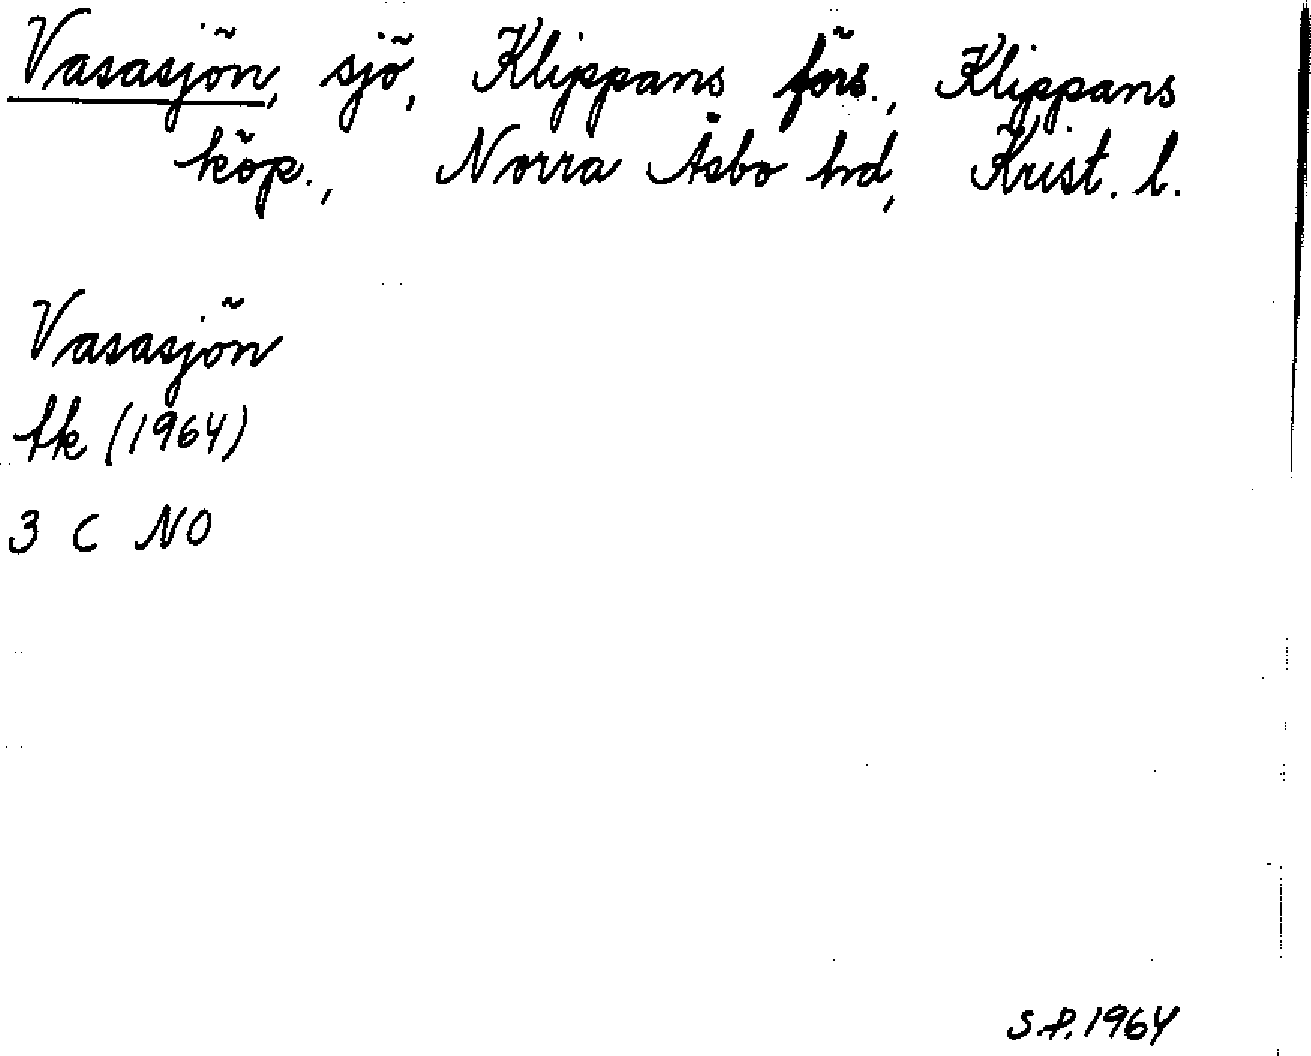 Vasasjön, sjö, Klippans förs., Klippans
köp., Norra Åsbo hd, Krist. l.
Vasasjön
tk (1964)
3 C NO
S.P. 1964